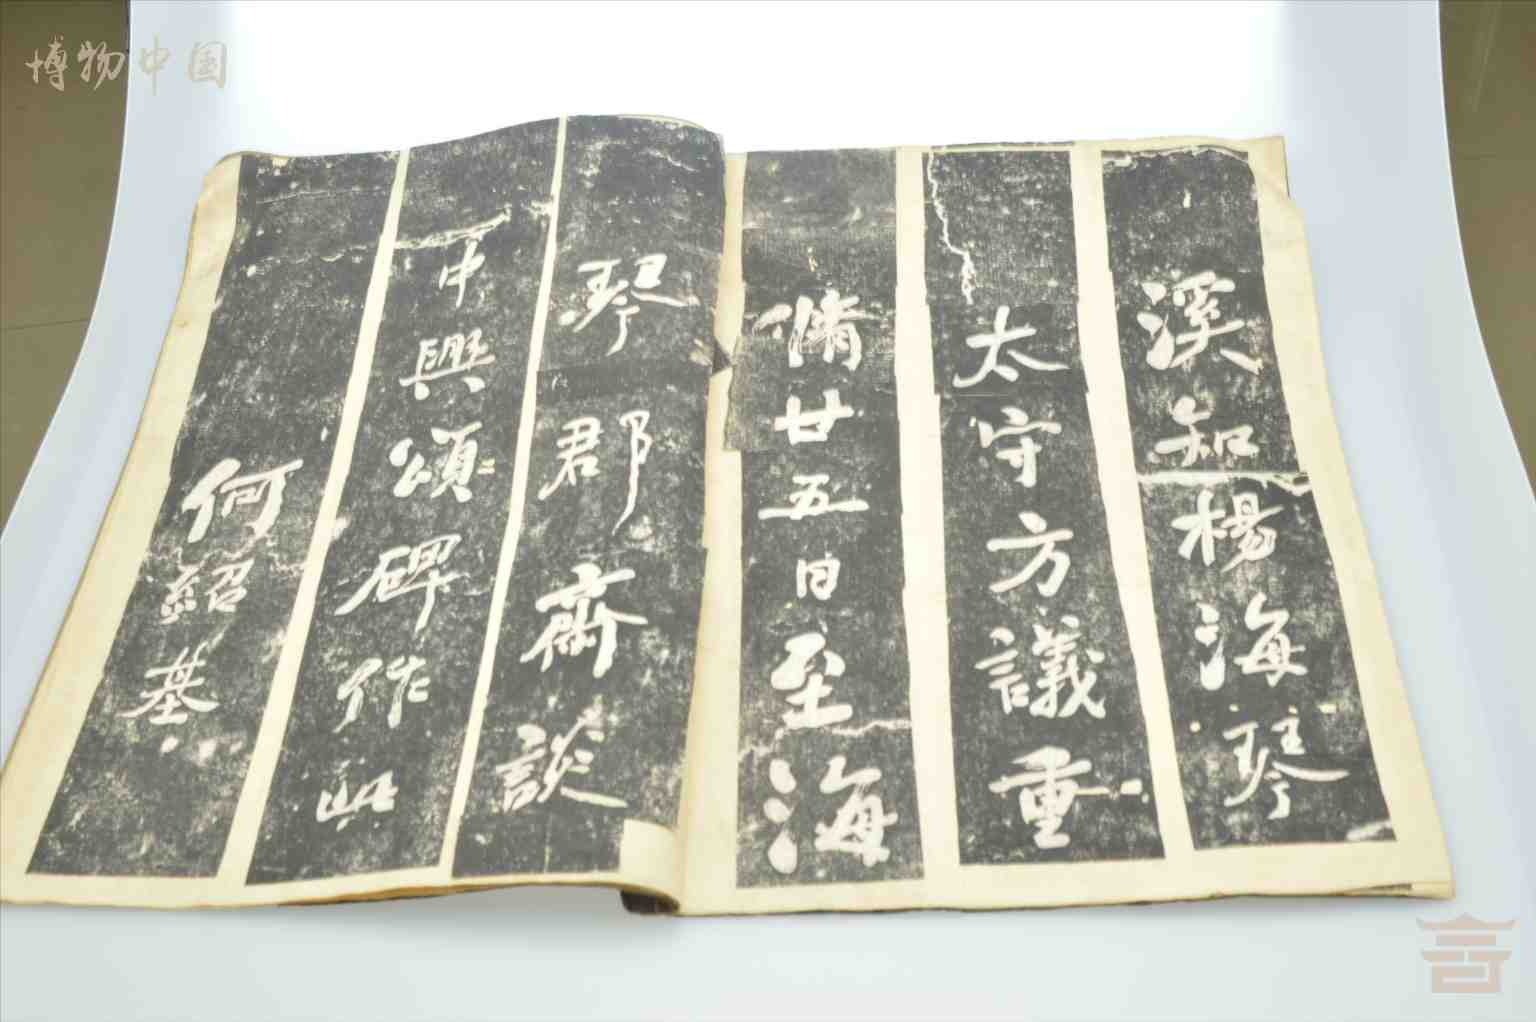 博物中国
溪知楊海琴
太守方議重
脩廿五日至海
琴郡齋談
中興頌碑作此
何紹基